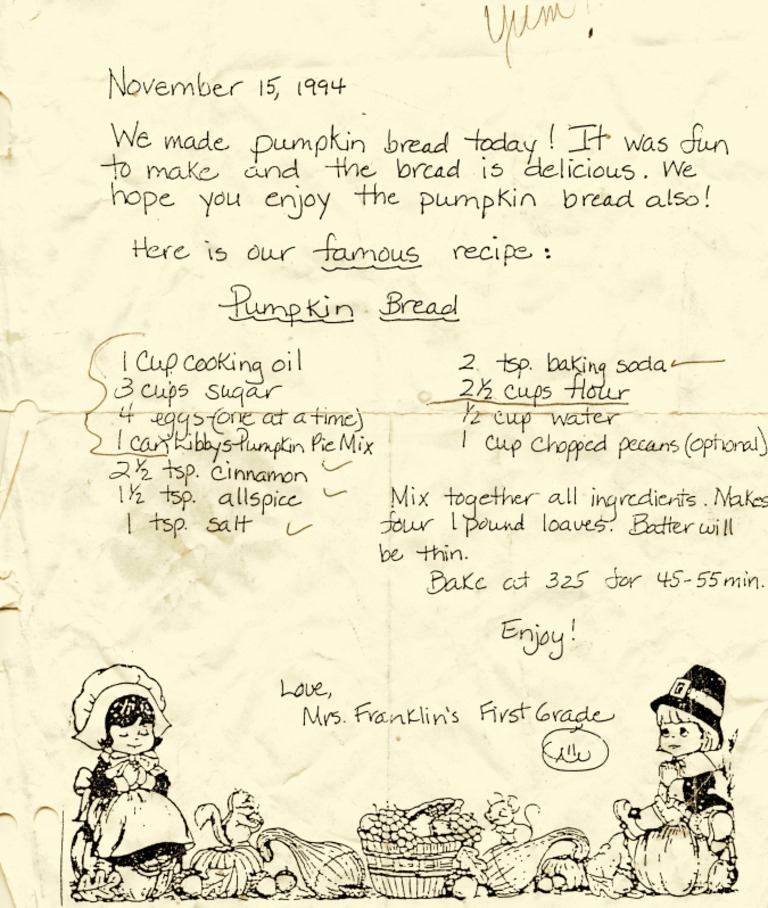 Yum!
November 15, 1994
We made pumpkin bread today! It was fun
to make and the bread is delicious. We
hope you enjoy the pumpkin bread also!
Here is our famous recipe:
Pumpkin Bread
1 Cup cooking oil
3 cups sugar
4 eggs (one at a time)
1 can Libby's Pumpkin Pie Mix
2½ tsp. cinnamon
1½ tsp. allspice
1 tsp. salt
2 tsp. baking soda
2½ cups flour
½ cup water
1 cup chopped pecans (optional)
Mix together all ingredients. Makes
four 1 pound loaves. Batter will
be thin.
Bake at 325 for 45-55 min.
Enjoy!
Love,
Mrs. Franklin's First Grade